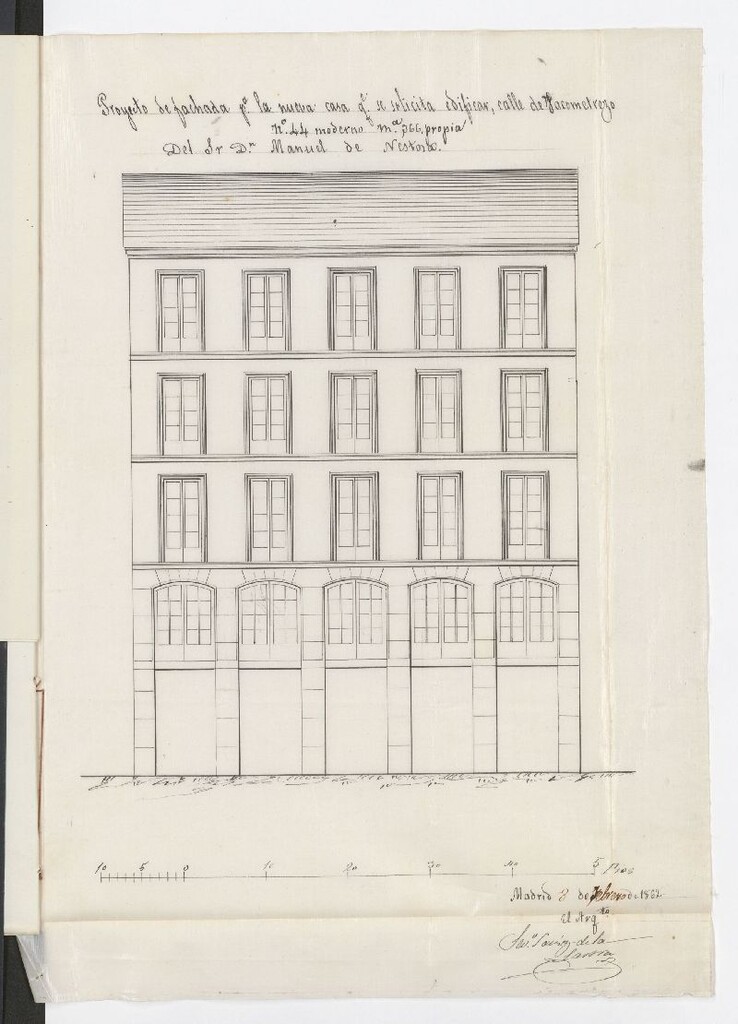 Proyecto de fachada pª. la nueva casa q.ᵉ se solicita edificar, calle de Jacometrezo
nº. 44 moderno mª. 366. propia
Del Sr Dn Manuel de
10 5 0 10 20 30 40 5 Pies
Madrid 3 de Febrero de 1862
El Arqto
de la